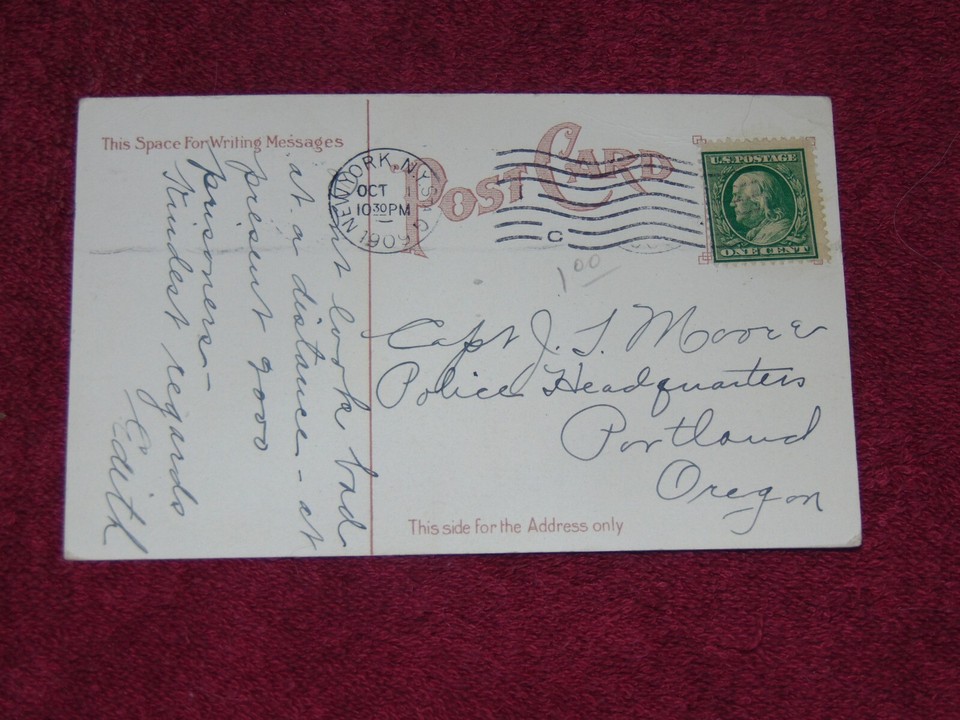 This Space For Writing Messages
POST CARD
NEW YORK, N.Y.
OCT
10 30 PM
1909
C
U.S. POSTAGE
ONE CENT
1 00
Dont look bad
at a distance - at
present 9000
prisoners -
Kindest regards
Edith
Capt J. T. Moore
Police Headquarters
Portland
Oregon
This side for the Address only